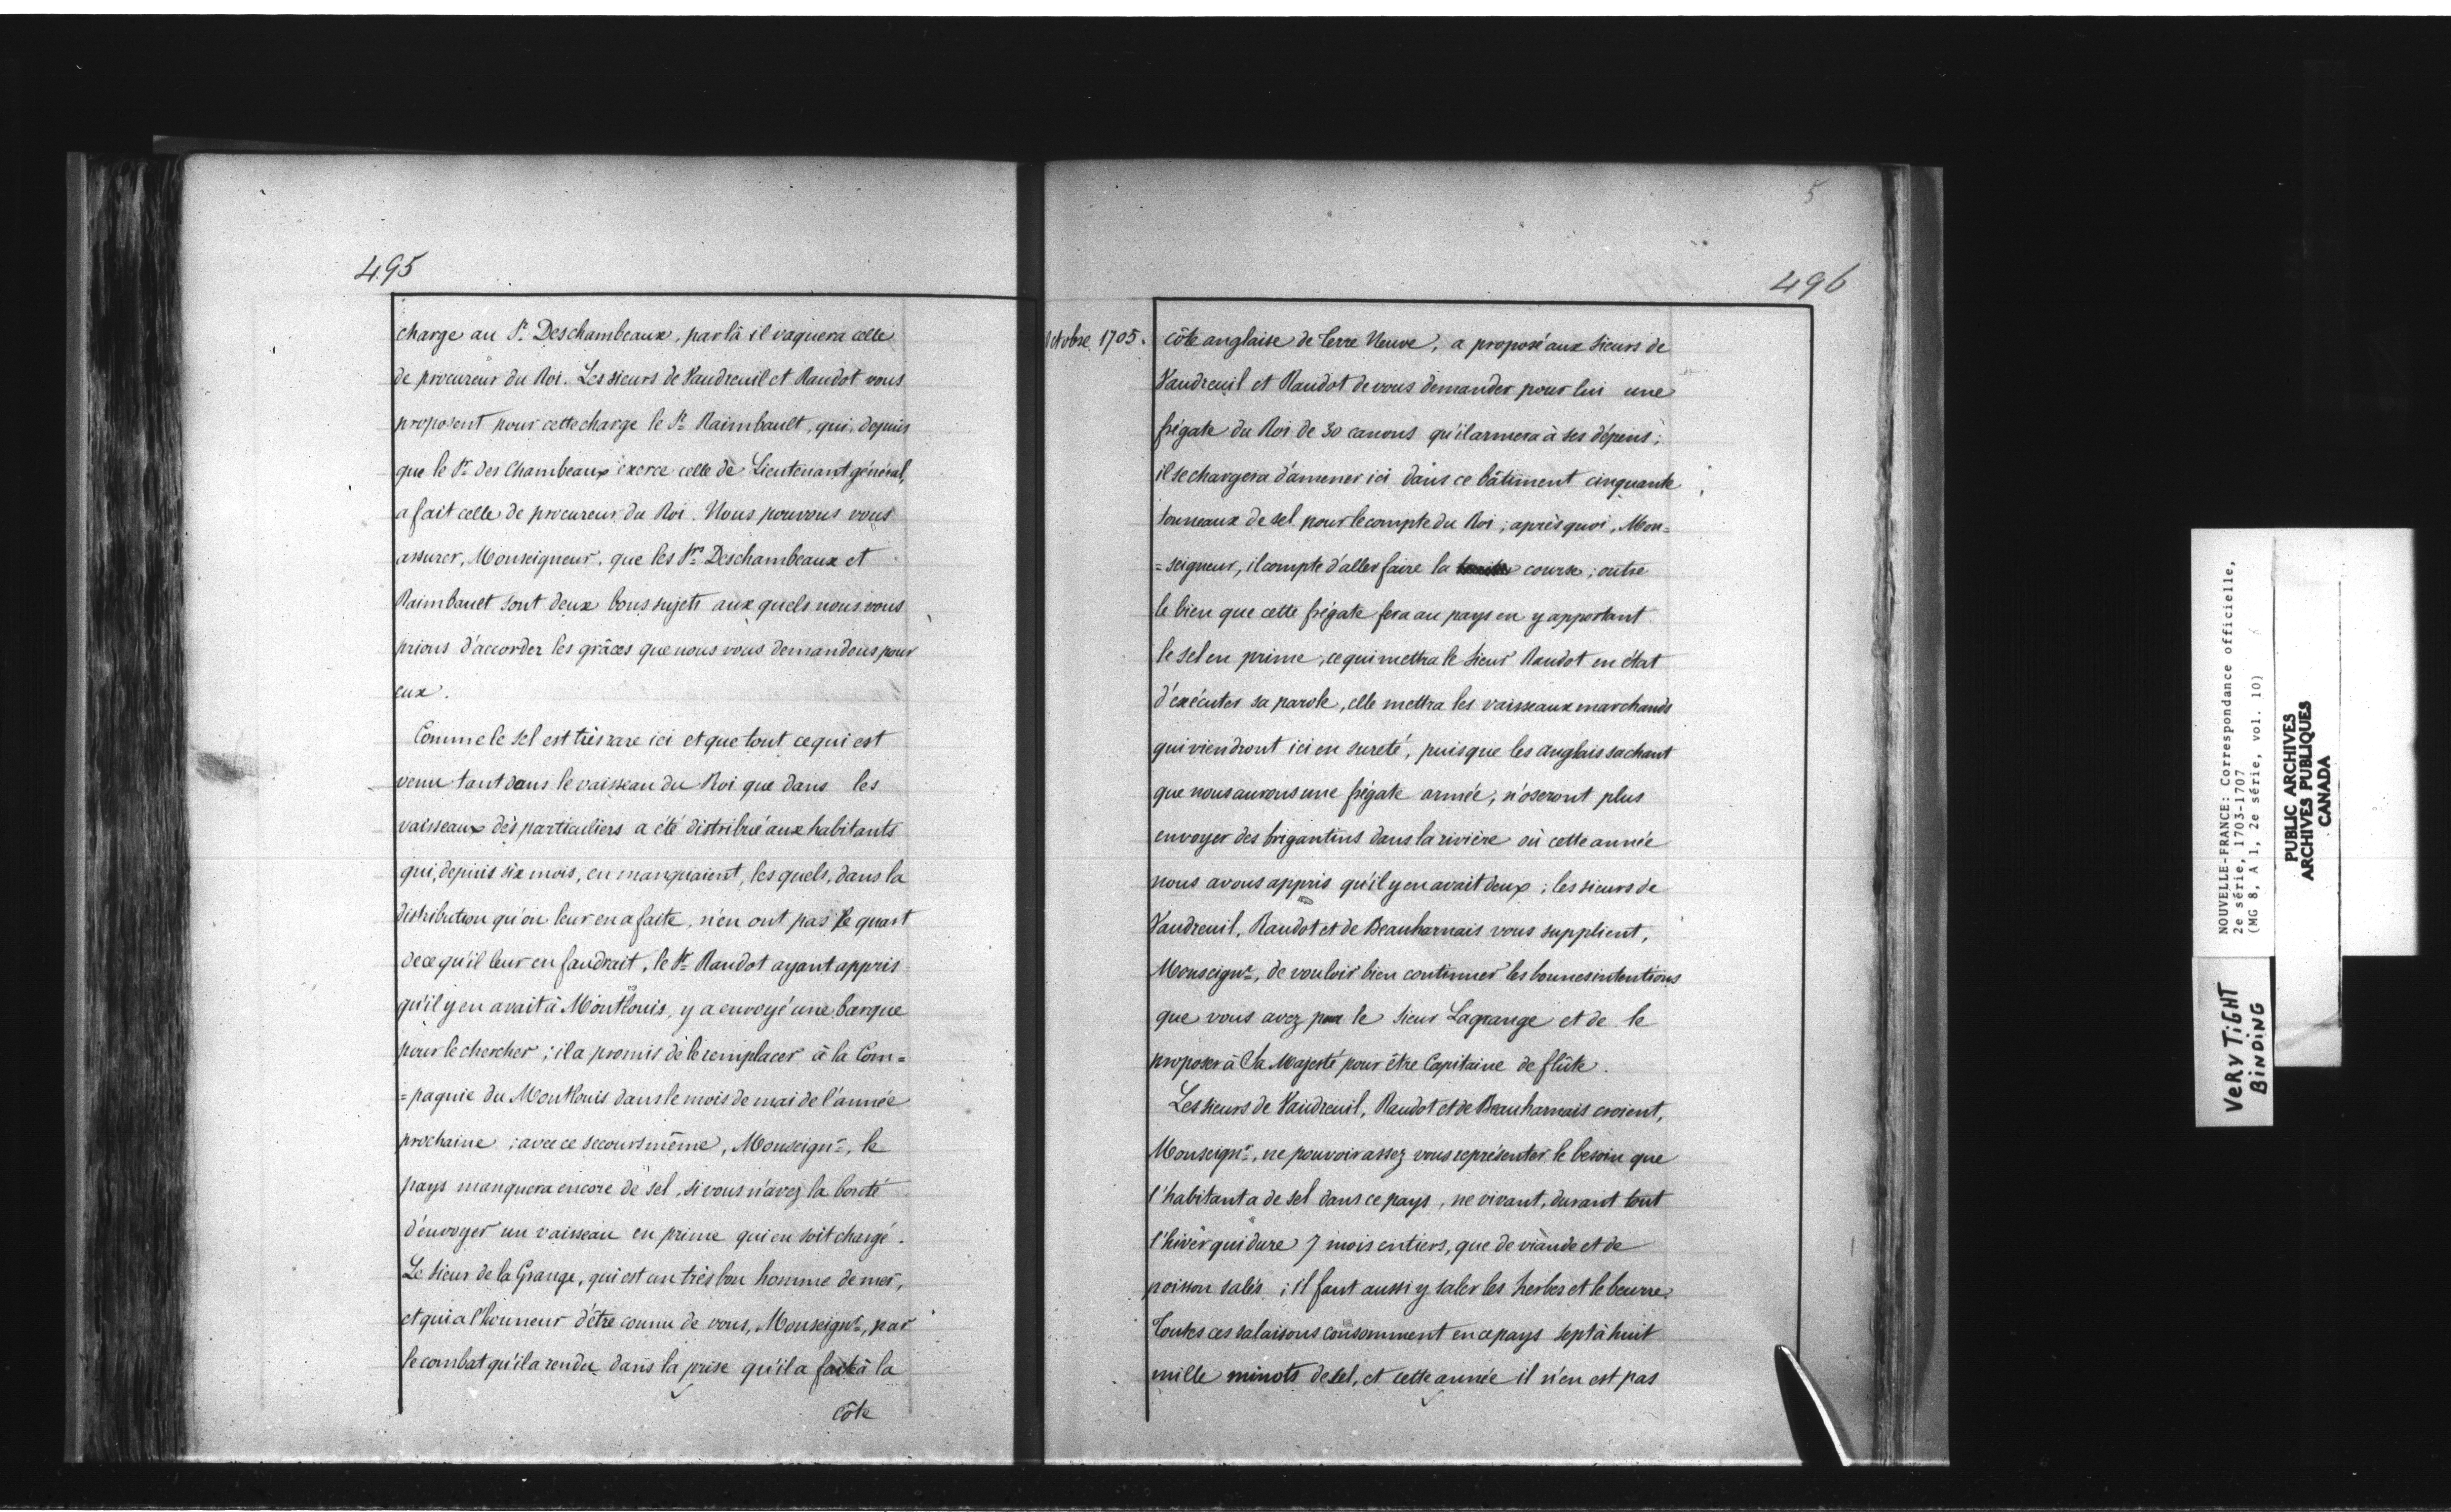 495
charge au Sr. Deschambeaux, par là il vaquera celle
de procureur du Roi. Les sieurs de Vaudreuil et Raudot vous
proposent pour cette charge le Sr. Raimbault, qui, depuis
que le Sr. des Chambeaux exerce celle de Lieutenant général,
a fait celle de procureur du Roi. Nous pouvons vous
assurer, Monseigneur, que les Srs. Deschambeaux et
Raimbault sont deux bons sujets aux quels nous vous
prions d'accorder les grâces que nous vous demandons pour
eux.
Comme le sel est très rare ici et que tout ce qui est
venu tant dans le vaisseau du Roi que dans les
vaisseaux des particuliers a été distribué aux habitants
qui, depuis six mois, en manquaient, les quels, dans la
distribution qu'on leur en a faite, n'en ont pas le quart
de ce qu'il leur en faudrait, le Sr. Raudot ayant appris
qu'il y en avait à Montlouis, y a envoyé une barque
pour le chercher ; il a promis de le remplacer à la Com=
=pagnie du Montlouis dans le mois de mai de l'année
prochaine ; avec ce secours même, Monseignr., le
pays manquera encore de sel, si vous n'avez la bonté
d'envoyer un vaisseau en prime qui en soit chargé.
Le sieur de la Grange, qui est un très bon homme de mer,
et qui a l'honneur d'être connu de vous, Monseignr., par
le combat qu'il a rendu dans la prise qu'il a faite à la
côte
5
496
Octobre 1705.
côte anglaise de Terre Neuve, a proposé aux sieurs de
Vaudreuil et Raudot de vous demander pour lui une
frégate du Roi de 30 canons qu'il armera à ses dépens ;
il se chargera d'amener ici dans ce bâtiment cinquante
tonneaux de sel pour le compte du Roi ; après quoi, Mon=
=seigneur, il compte d'aller faire la course ; outre
le bien que cette frégate fera au pays en y apportant
le sel en prime, ce qui mettra le sieur Raudot en état
d'exécuter sa parole, elle mettra les vaisseaux marchands
qui viendront ici en sureté, puisque les anglais sachant
que nous aurons une frégate armée, n'oseront plus
envoyer des brigantins dans la rivière où cette année
nous avons appris qu'il y en avait deux ; les sieurs de
Vaudreuil, Raudot et de Beauharnais vous supplient,
Monseignr., de vouloir bien continuer les bonnes intentions
que vous avez pour le sieur Lagrange et de le
proposer à Sa Majesté pour être Capitaine de flûte.
Les sieurs de Vaudreuil, Raudot et de Beauharnais croient,
Monseignr., ne pouvoir assez vous représenter le besoin que
l'habitant a de sel dans ce pays, ne vivant, durant tout
l'hiver qui dure 7 mois entiers, que de viande et de
poisson salés ; il faut aussi y saler les herbes et le beurre.
Toutes ces salaisons consomment en ce pays sept à huit
mille minots de sel, et cette année il n'en est pas
NOUVELLE-FRANCE: Correspondance officielle,
2e série, 1703-1707
(MG 8, A 1, 2e série, vol. 10)
PUBLIC ARCHIVES
ARCHIVES PUBLIQUES
CANADA
VERY TIGHT
BINDING